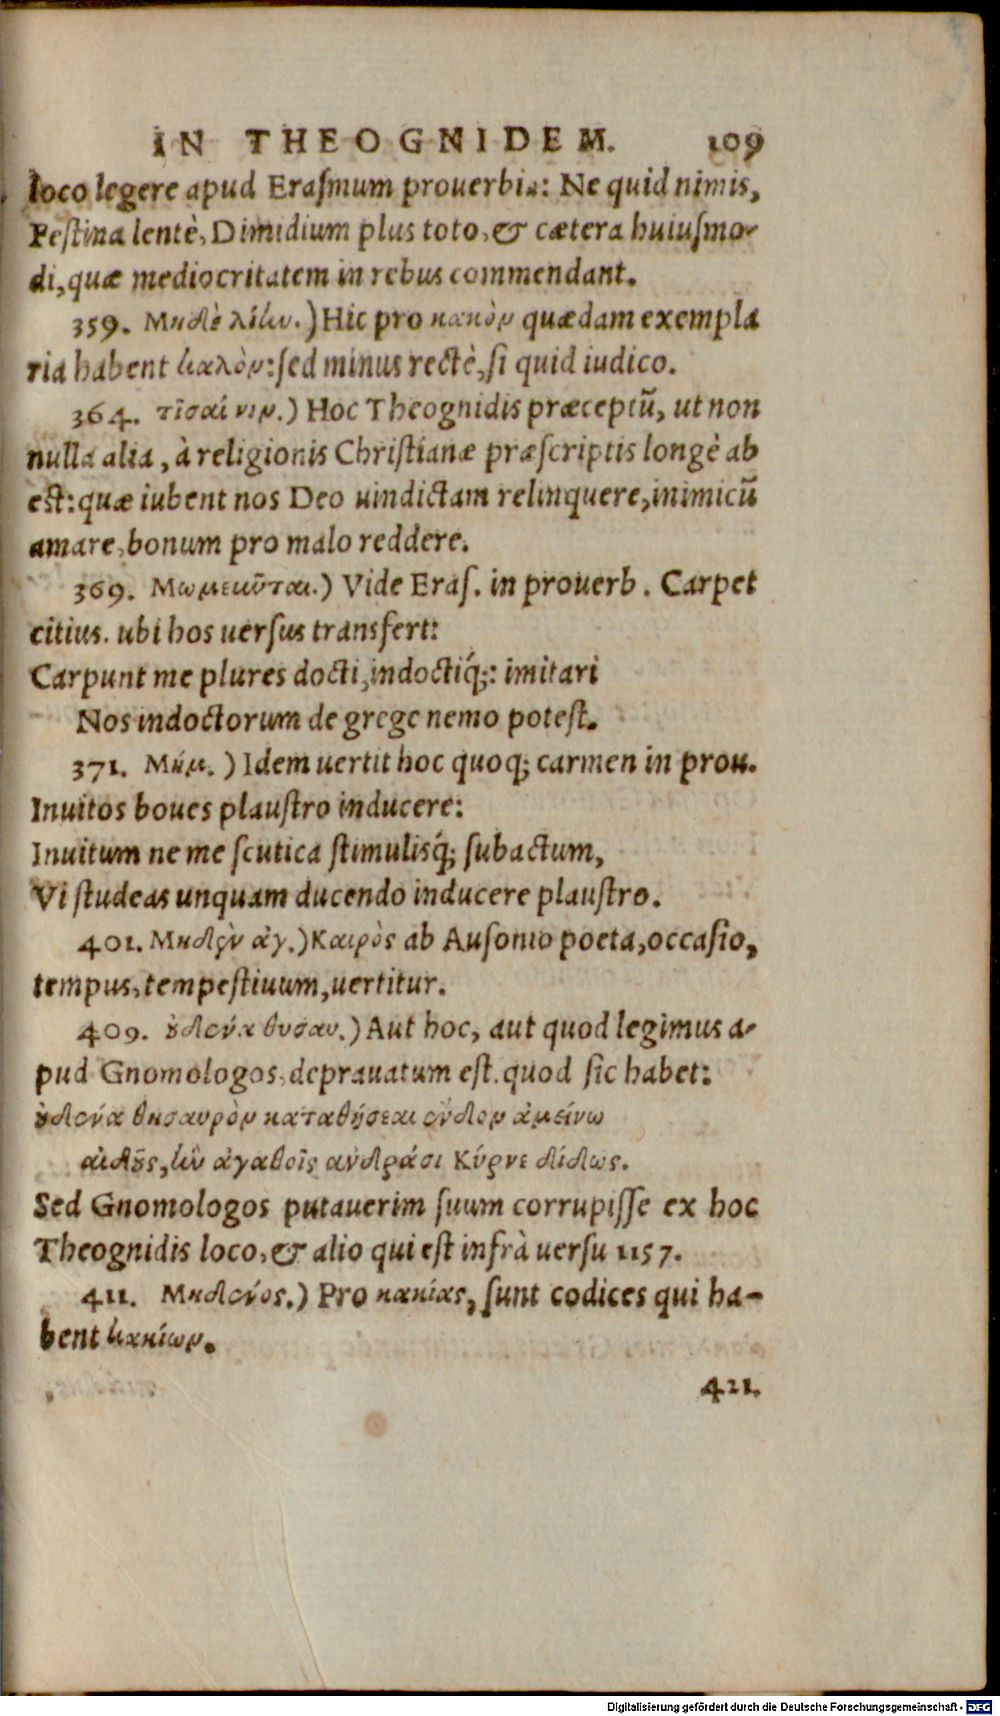 IN THEOGNIDEM. 109
loco legere apud Erasmum prouerbia: Ne quid nimis,
Festina lentè, Dimidium plus toto, & cætera huiusmo-
di, quæ mediocritatem in rebus commendant.
359. Μηδὲ λίην.) Hic pro κακὸν quædam exempla
ria habent καλὸν: sed minus rectè, si quid iudico.
364. τῖσαί νιν.) Hoc Theognidis præceptũ, ut non
nulla alia, à religionis Christianæ præscriptis longè ab
est: quæ iubent nos Deo uindictam relinquere, inimicũ
amare, bonum pro malo reddere.
369. Μωμεῦνται.) Vide Eras. in prouerb. Carpet
citius. ubi hos uersus transfert:
Carpunt me plures docti, indoctiq́;: imitari
Nos indoctorum de grege nemo potest.
371. Μή μ.) Idem uertit hoc quoq; carmen in prou.
Inuitos boues plaustro inducere:
Inuitum ne me scutica stimulisq́; subactum,
Vi studeas unquam ducendo inducere plaustro.
401. Μηδὲν ἀγ.) Καιρὸς ab Ausonio poeta, occasio,
tempus, tempestiuum, uertitur.
409. ὐδένα θυσαυ.) Aut hoc, aut quod legimus a-
pud Gnomologos, deprauatum est. quod sic habet:
ὐδένα θησαυρὸν καταθήσεαι ἔνδον ἀμείνω
αἰδοῦς, ἣν ἀγαθοῖς ἀνδράσι Κύρνε δίδως.
Sed Gnomologos putauerim suum corrupisse ex hoc
Theognidis loco, & alio qui est infrà uersu 1157.
411. Μηδενός.) Pro κακίας, sunt codices qui ha-
bent κακίων.
421.
Digitalisierung gefördert durch die Deutsche Forschungsgemeinschaft - DFG